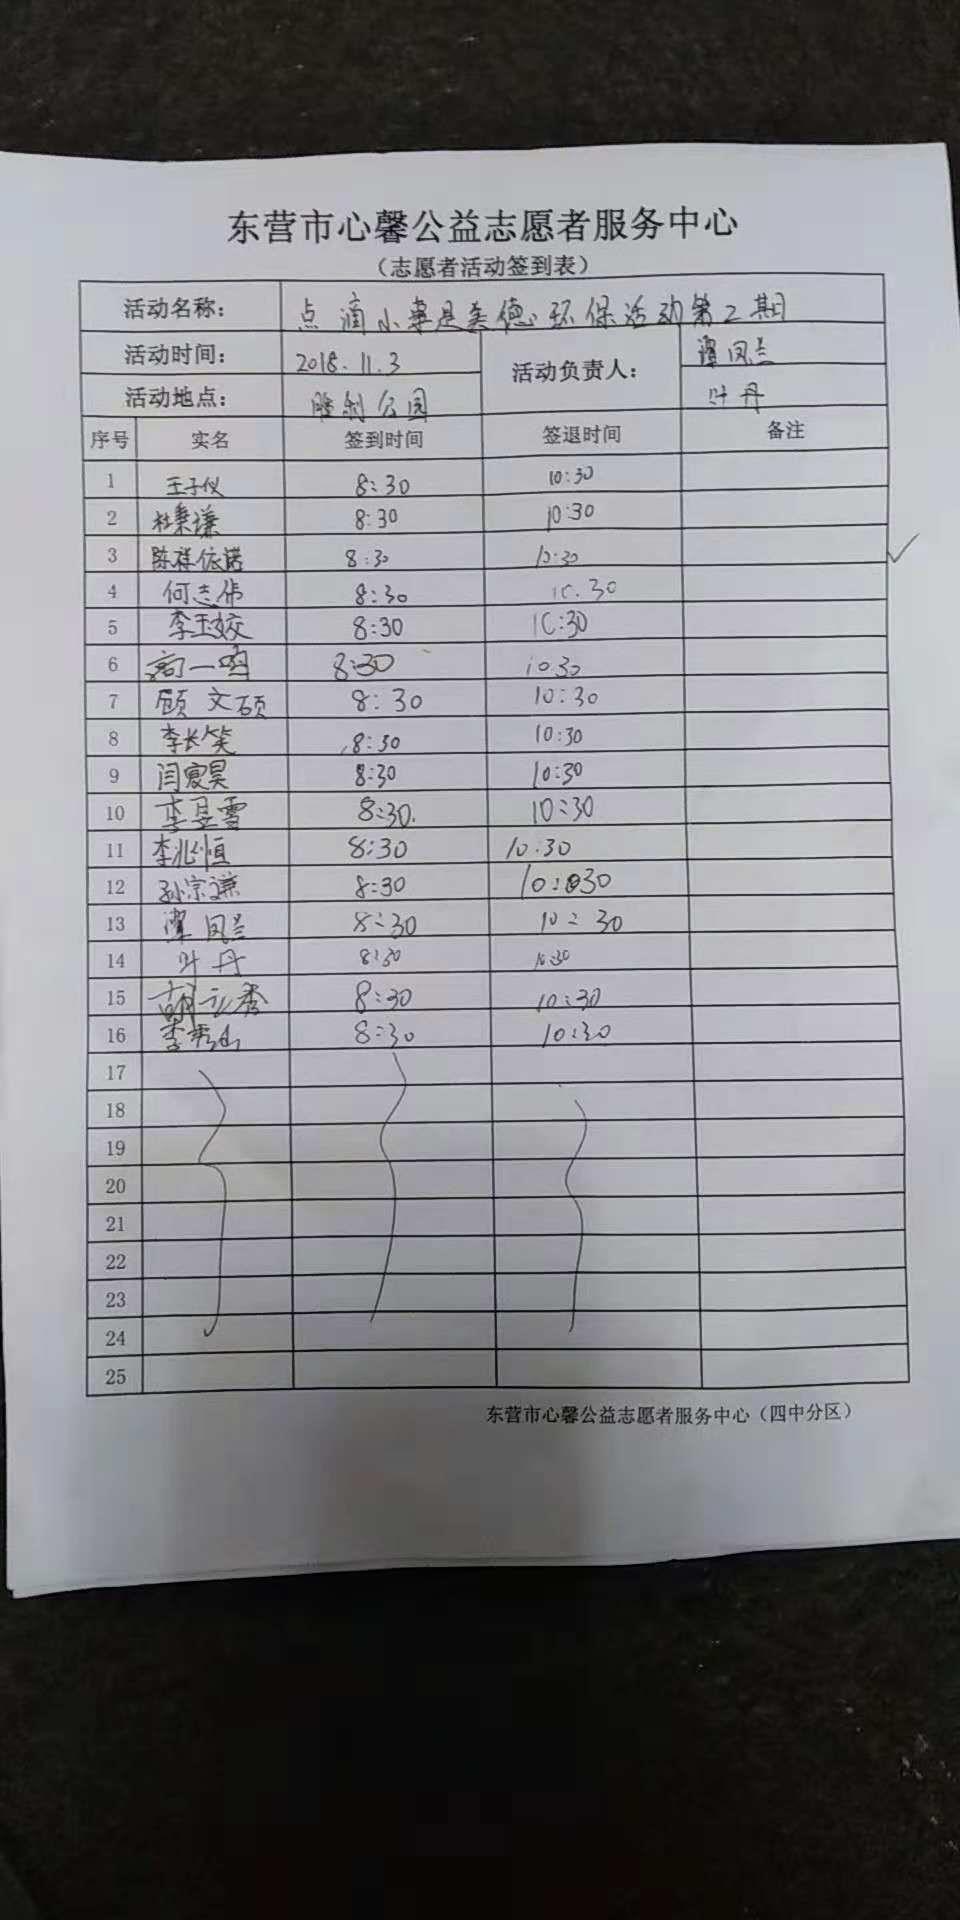 东营市心馨公益志愿者服务中心
（志愿者活动签到表）
活动名称： 点滴小事是美德 环保活动第2期
活动时间： 2018.11.3 活动负责人： 谭凤兰
活动地点： 胜利公园 叶丹
序号 实名 签到时间 签退时间 备注
1 王子仪 8:30 10:30
2 杜秉谦 8:30 10:30
3 陈祥依诺 8:30 10:30
4 何志伟 8:30 10.30
5 李玉姣 8:30 10:30
6 高一鸣 8:30 10.30
7 顾文硕 8:30 10:30
8 李长笑 8:30 10:30
9 闫宬昊 8:30 10:30
10 李昱雪 8:30. 10:30
11 李兆恒 8:30 10.30
12 孙宗谦 8:30 10:30
13 谭凤兰 8:30 10:30
14 叶丹 8:30 10:30
15 胡立秀 8:30 10:30
16 李秀 8:30 10:30
17
18
19
20
21
22
23
24
25
东营市心馨公益志愿者服务中心（四中分区）